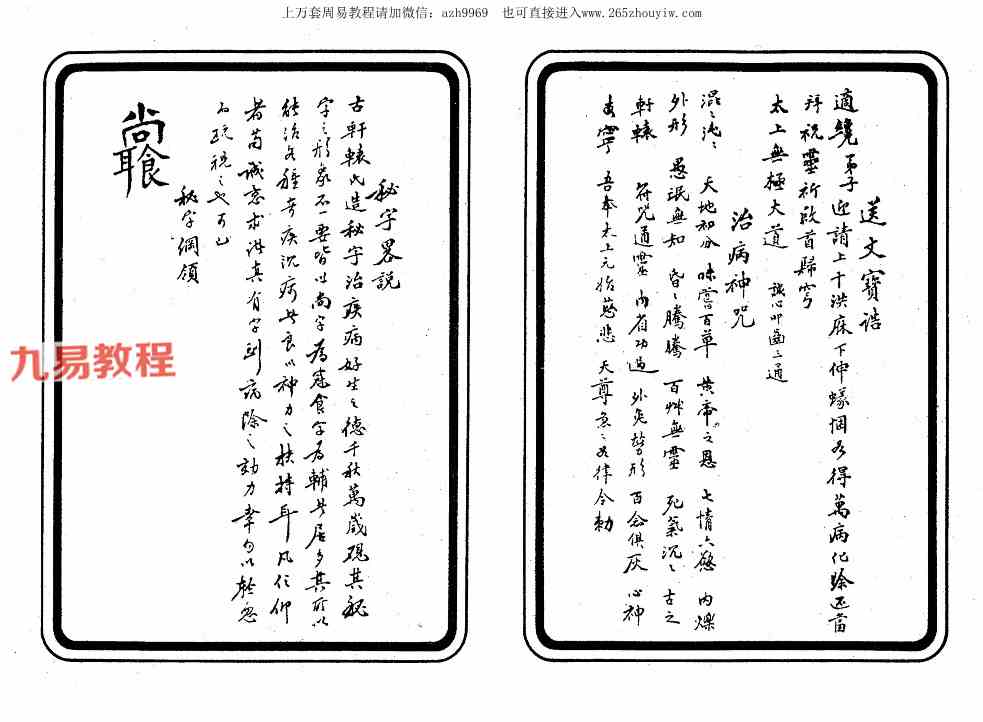 上万套周易教程请加微信: azh9969 也可直接进入www.265zhouyiw.com
送文寶誥
適纔弟子 迎請上千洪庥下伸蟻悃 得萬病化除 當
拜祝靈祈啟首歸穹
太上無極大道 誠心叩 三通
治病神咒
混〻沌〻 天地初分 味嘗百草 黄帝之恩 七情六慾 内爍
外形 愚氓無知 昏〻騰騰 百艸無靈 死氣沉〻 古之
軒轅 符咒通靈 内省功過 外 形 百念俱灰 心神
寧 吾奉太上元始慈悲 天尊急〻如律令勅
秘字畧説
古軒轅氏造秘字治疾病好生之德千秋萬歲觀其秘
字之形象不一要皆以尚字為 食字為輔 居多其所以
能治各種奇疾沉疴 良以神力之扶持耳凡信仰
者苟誠意求 真有字到病除之効力幸勿以 忽
而 視之也可已
秘字綱領
九易教程